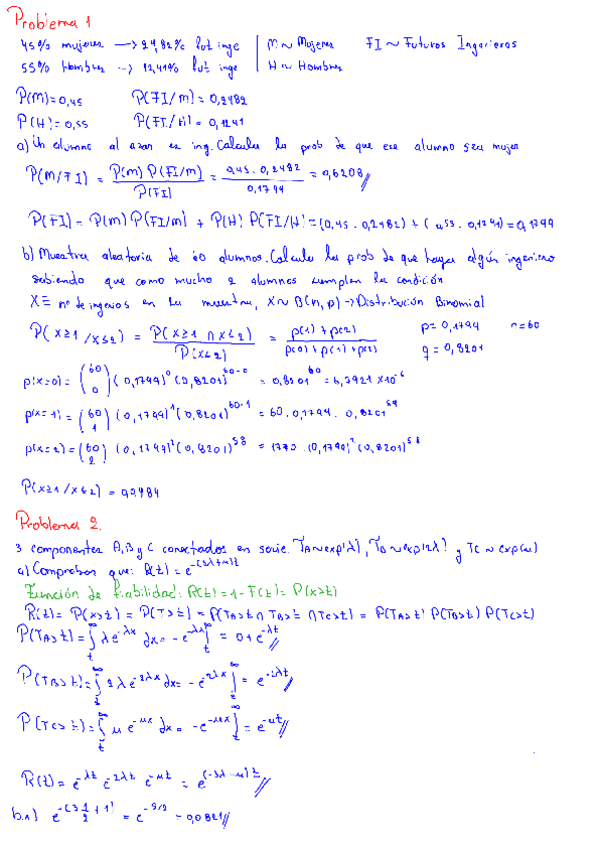 Problema 1
45% mujeres —> 24,82% fut inge | M ~ Mujeres FI ~ Futuros Ingenieros
55% Hombres -> 12,41% fut inge | H ~ Hombres
P(M)=0,45 P(FI/M)=0,2482
P(H)=0,55 P(FI/H)=0,1241
a) Un alumno al azar es ing. Calcula la prob de que ese alumno sea mujer
P(M/FI) = P(M) P(FI/M) / P(FI) = 0,45 · 0,2482 / 0,1799 = 0,6208
P(FI) = P(M) P(FI/M) + P(H) P(FI/H) = (0,45 · 0,2482) + (0,55 · 0,1241) = 0,1799
b) Muestra aleatoria de 60 alumnos. Calcula la prob de que haya algún ingeniero
sabiendo que como mucho 2 alumnos cumplen la condición
X ≡ nº de ingenios en la muestra, X ~ B(n, p) -> Distribución Binomial
P(X≥1 / X≤2) = P(X≥1 ∩ X≤2) / P(X≤2) = p(1) + p(2) / p(0) + p(1) + p(2) p= 0,1799 n=60
q = 0,8201
p(x=0) = (60 0) (0,1799)^0 (0,8201)^60-0 = 0,8201^60 = 6,7921 x10^-6
p(x=1) = (60 1) (0,1799)^1 (0,8201)^60-1 = 60 · 0,1799 · 0,8201^59
p(x=2) = (60 2) (0,1799)^2 (0,8201)^58 = 1770 · (0,1799)^2 (0,8201)^58
P(X≥1 / X≤2) = 0,9984
Problema 2.
3 componentes A, B y C conectados en serie. TA ~ exp(λ), TB ~ exp(2λ) y TC ~ exp(μ)
a) Comprobar que: R(t) = e^-(3λ+μ)t
Función de fiabilidad: R(t) = 1 - F(t) = P(X>t)
R(t) = P(X>t) = P(T>t) = P(TA>t ∩ TB>t ∩ TC>t) = P(TA>t) P(TB>t) P(TC>t)
P(TA>t) = ∫ λe^-λx dx = -e^-λx ] = 0 + e^-λt
P(TB>t) = ∫ 2λe^-2λx dx = -e^-2λx ] = e^-2λt
P(TC>t) = ∫ μe^-μx dx = -e^-μx ] = e^-μt
R(t) = e^-λt e^-2λt e^-μt = e^(-3λ-μ)t
b.1)